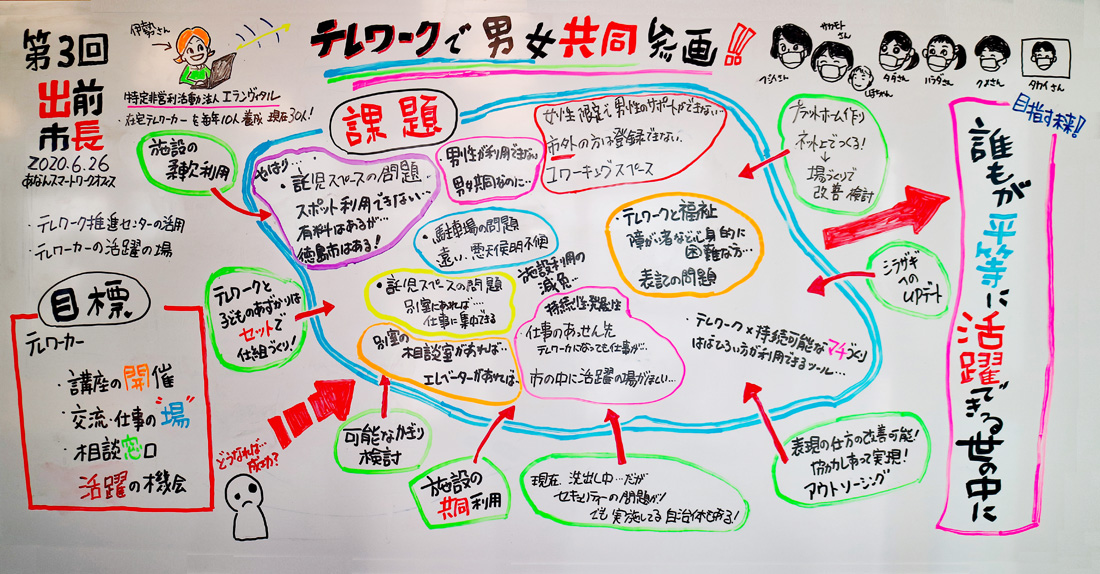 第3回
出前
市長
2020.6.26
あなんスマートワークオフィス
伊勢さん
テレワークで男女共同参画!!
特定非営利活動法人エランヴィタル
・在宅テレワーカーを毎年10人養成 現在30人!
サカモトさん
タダさん
ハラダさん
クメさん
・テレワーク推進センターの活用
・テレワーカーの活躍の場
目標
テレワーカー
・講座の開催
・交流・仕事の“場”
・相談窓口
活躍の機会
どうなれば…
成功?
課題
施設の
柔軟利用
やはり…
・託児スペースの問題
スポット利用できない
有料はあるが…
徳島市はある!
・男性が利用できない
男女共同なのに…
女性限定で男性のサポートができない…
市外の方は登録できない
コワーキングスペース
・駐車場の問題
遠い、悪天候時不便
・テレワークと福祉
障がい者など心身的に
困難な方…
表記の問題
テレワークと
子どものあずかりは
セットで
仕組づくり!
・託児スペースの問題
別室にあれば…
仕事に集中できる
施設利用の
減免…
別室の
相談室があれば…
エレベーターがあれば…
持続性・発展性
仕事のあっせん先
テレワーカーになっても仕事が…
市の中に活躍の場がほしい…
・テレワーク×持続可能なマチづくり
はばひろい方が利用できるツール…
プラットホーム作り
ネット上でつくる!
↓
場づくりで
改善・検討
ミライザキ
への
UPデート
可能なかぎり
検討
施設の
共同利用
現在、洗出し中…だが
セキュリティーの問題が!
でも実施してる自治体もある!
表現の仕方の改善可能!
協力しあって実現!
アウトソーシング
目指す未来!
誰もが平等に活躍できる世の中に